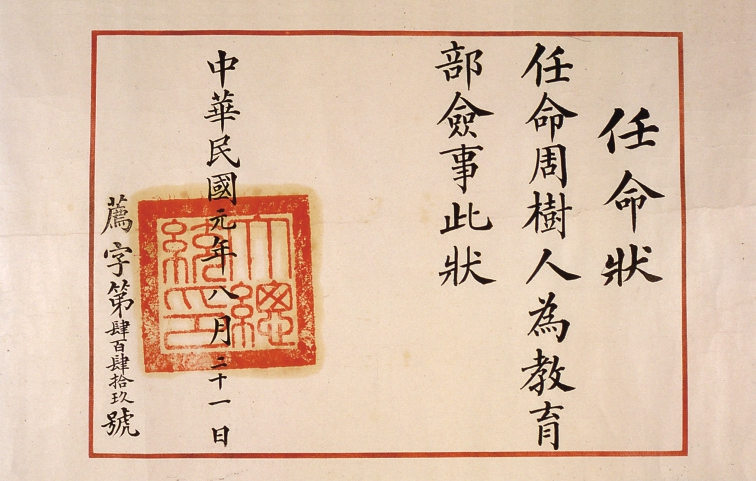 任命狀
任命周樹人為教育
部僉事此狀
中華民國元年八月二十一日
薦字第肆百肆拾玖號
大總統印